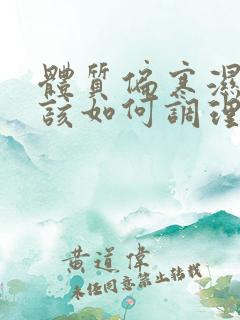 體質偏寒濕
該如何調理
黃道偉
未經同意禁止轉載